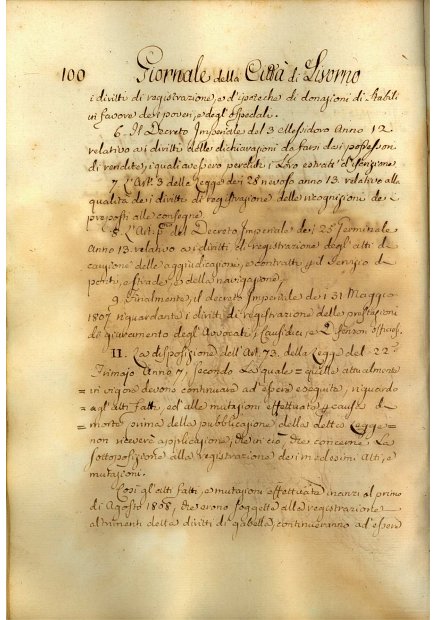 100 Giornale della Città di Livorno
i diritti di registrazione, e d'ipoteche di donazioni di Stabili
in favore dei poveri, e degl'Ospedali.
6. Il Decreto Imperiale del 3 Messidoro Anno 12
relativo ai diritti delle dichiarazioni da farsi dai possessori
di rendite, i quali avessero perduti i loro estratti d'iscrizione
7. L'Art. 3 della Legge dei 28 nevoso anno 13. relativo alla
qualità dei diritti di registrazione delle recognizioni de
preposti alle consegne
8. L'Art. p.º del Decreto Imperiale dei 25 Germinale
Anno 13. relativo ai diritti di registrazione degl'atti de
cauzione delle aggiudicazione, e contratti p il Servizio di
ponti, e strade, e della navigazione,
9. Finalmente, il decreto Imperiale de i 31 Maggio
1807 riguardante i diritti di registrazione delle prestazioni
de giuramento degl'Avvocati, Causidici, e offerenti officiosi.
II. La disposizione dell'Art. 73. della Legge del 22.
Frimajo Anno 7, secondo la quale = quelle attualmente
= in vigore devono continuare ad essere eseguite, riguardo
= agl'atti fatti, ed alle mutazioni effettuate p causa di
= morte, prima della pubblicazione della detta Legge =
non riceverà applicazione, che in ciò, che concerne la
sottoposizione alla registrazione dei medesimi Atti, e
mutazioni.
Così gl'atti fatti, e mutazioni effettuate inanzi al primo
di Agosto 1808, che erono soggette alla registrazione
altrimenti della diritti di gabella, continueranno ad'essere